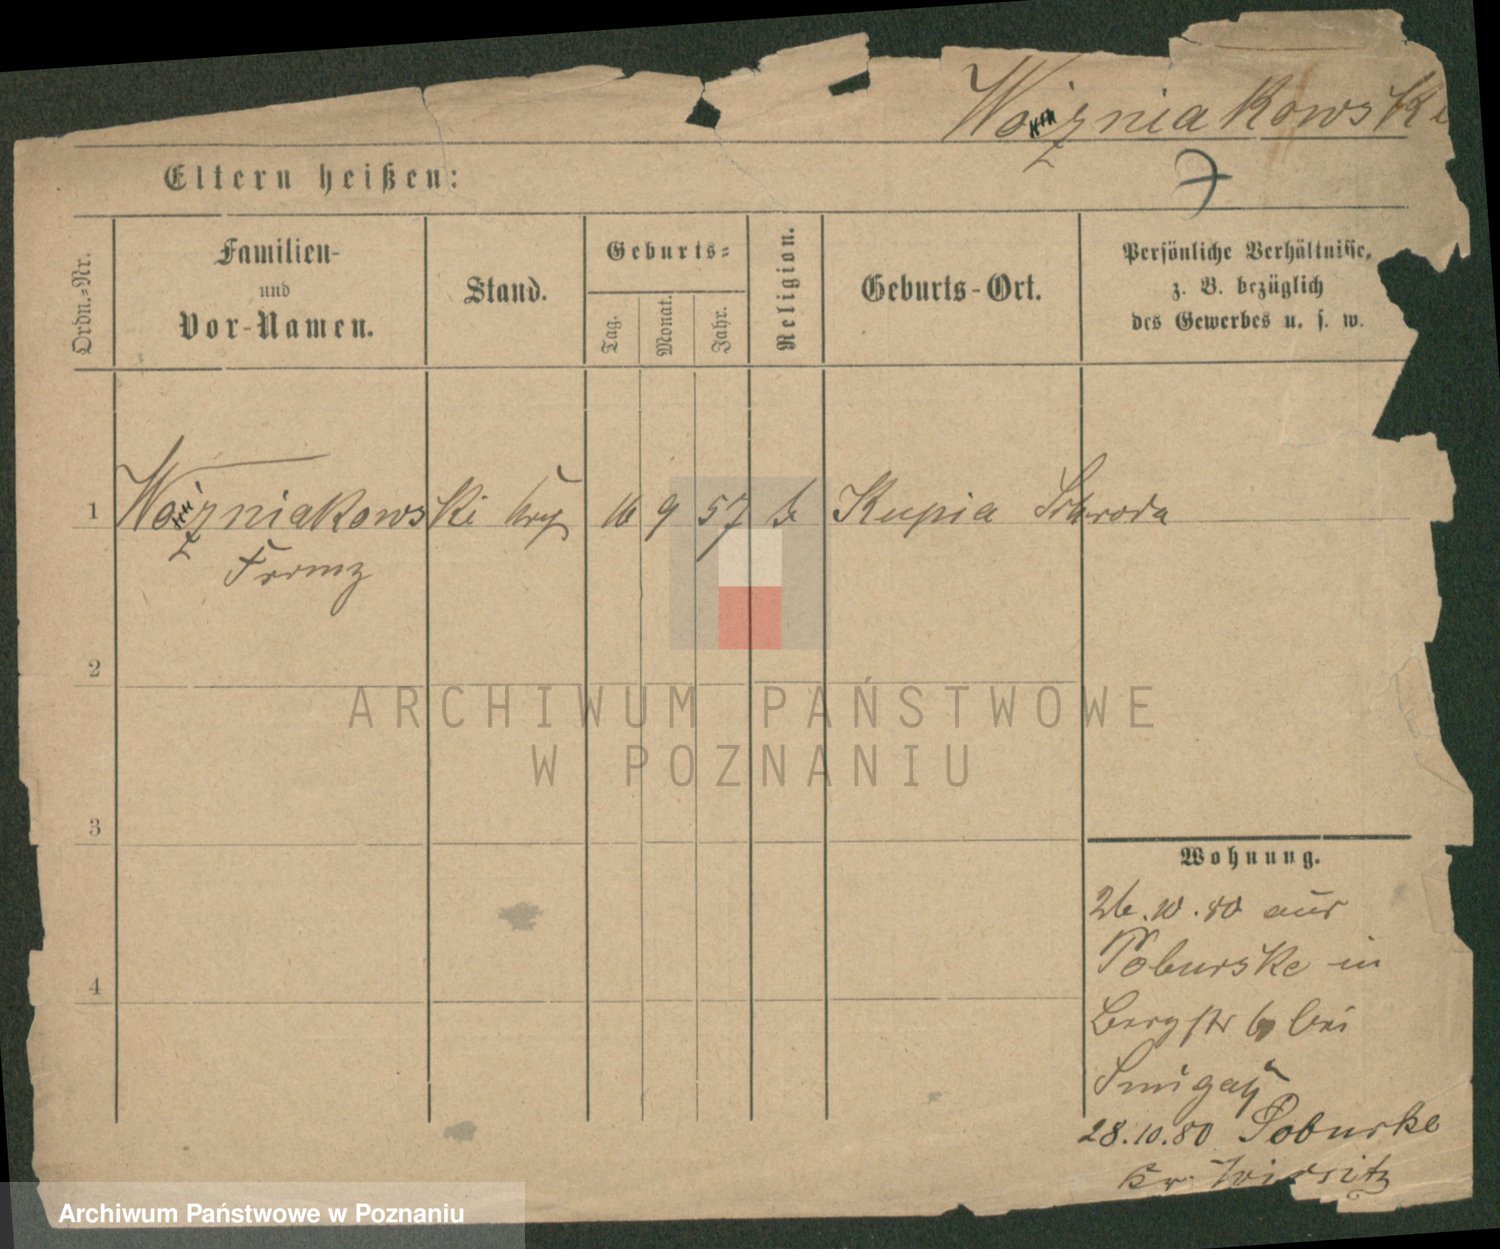 Wozniakowski
Eltern heißen:
Ordn.-Nr.
Familien-
und
Vor-Namen.
Stand.
Geburts-
Tag.
Monat.
Jahr.
Religion.
Geburts-Ort.
Persönliche Verhältnisse,
z. B. bezüglich
des Gewerbes u. s. w.
1 Wozniakowski 16 9 57 k Kupia Schroda
Franz
2
3
4
Wohnung.
26.10.80 aus
Poburske in
Bergstr 6 bei
Smigay
28.10.80 Poburke
Kr. Wirsitz
ARCHIWUM PAŃSTWOWE
W POZNANIU
Archiwum Państwowe w Poznaniu